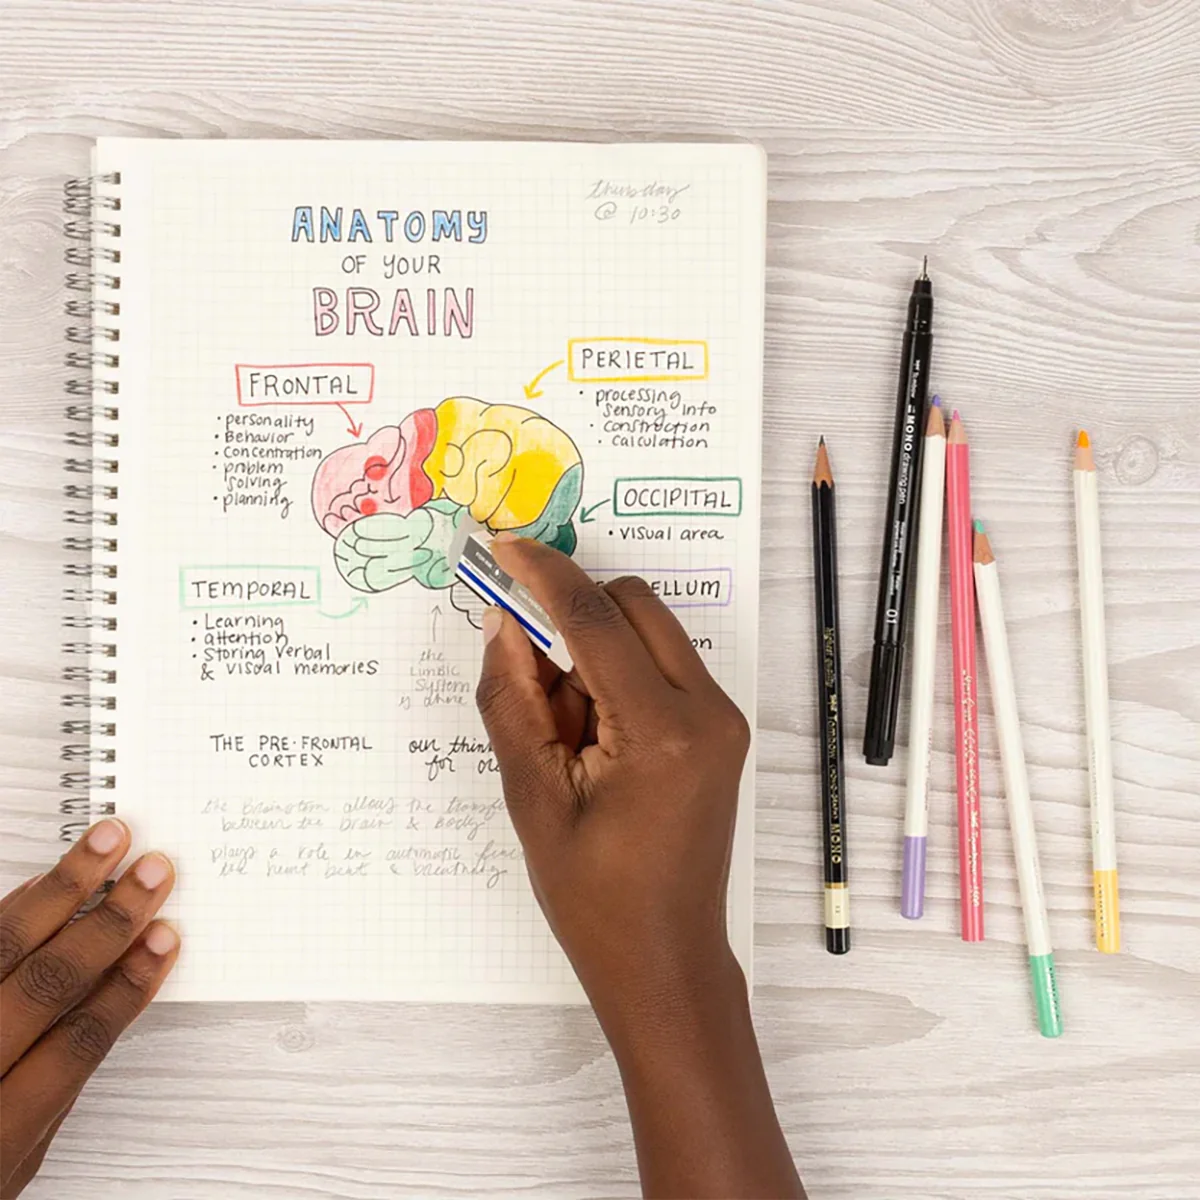 thursday
@ 10:30
ANATOMY
OF YOUR
BRAIN
FRONTAL
• personality
• Behavior
• concentration
• problem
solving
• planning
PERIETAL
• processing
sensory info
• construction
• calculation
OCCIPITAL
• visual area
ELLUM
on
TEMPORAL
• Learning
• attention
• storing verbal
& visual memories
the
Limbic
System
is above
THE PRE-FRONTAL
CORTEX
our thin
for
the Brainstem allows the transfe
between the brain & Body
plays a role in automatic func
like heart beat & breathing
MONO drawing pen
01
Tombow MONO